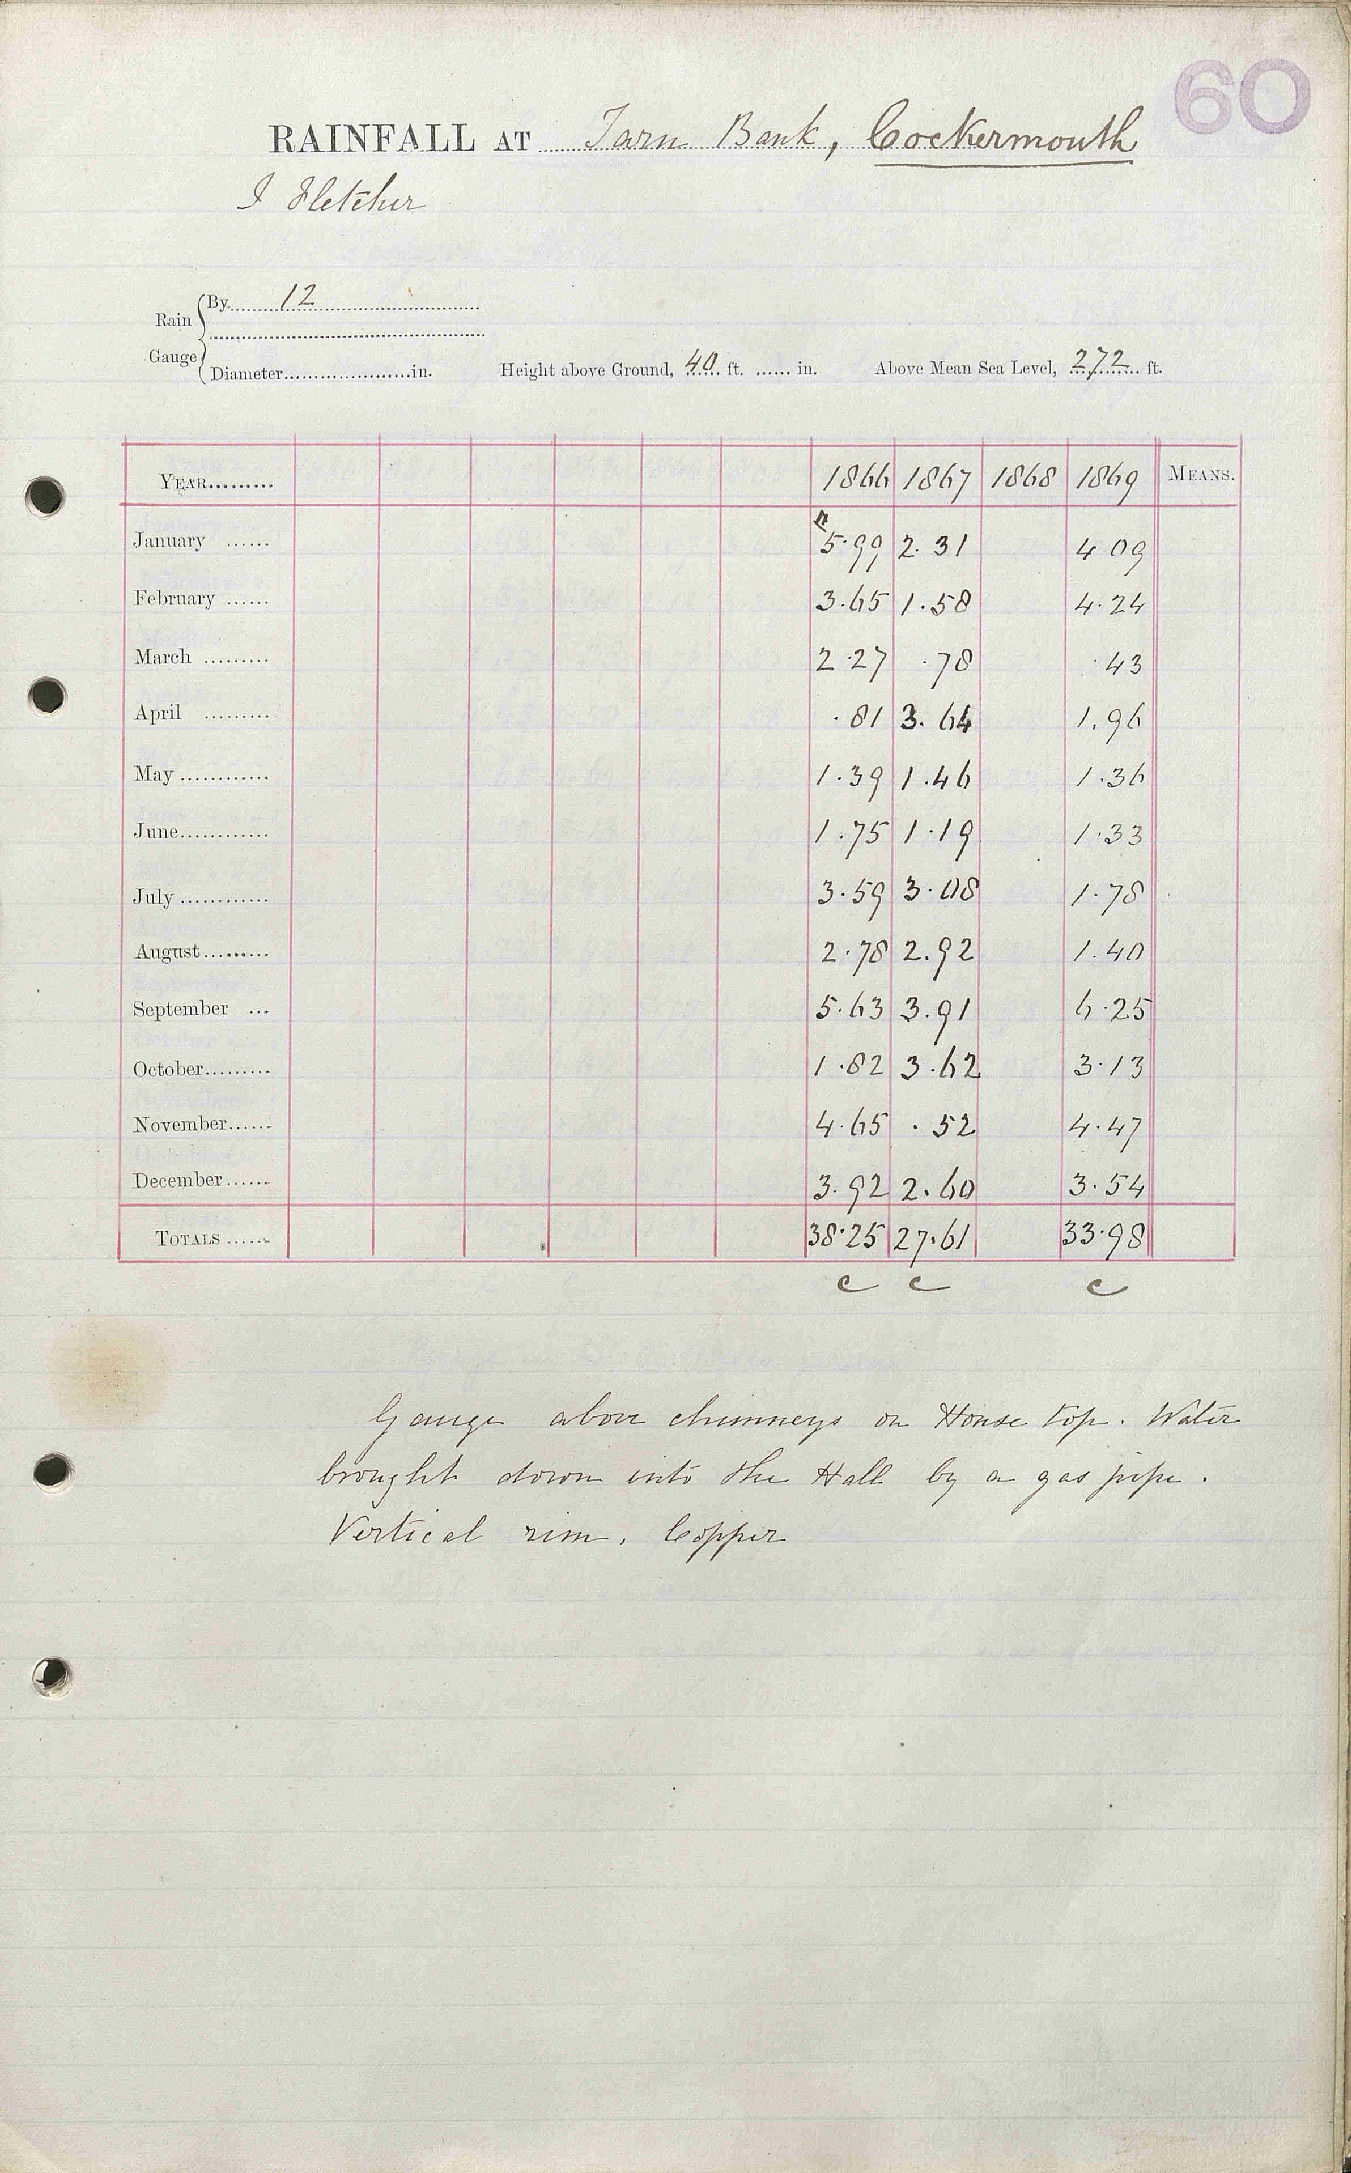 60
RAINFALL AT Tarn Bank, Cockermouth
I Fletcher
Rain Gauge
By 12
Diameter in. Height above Ground, 40 ft. in. Above Mean Sea Level, 272 ft.
YEAR 1866 1867 1868 1869 MEANS.
January 5.99 2.31 4 09
February 3.65 1.58 4.24
March 2.27 .78 .43
April .81 3.64 1.96
May 1.39 1.46 1.36
June 1.75 1.19 1.33
July 3.59 3.08 1.78
August 2.78 2.92 1.40
September 5.63 3.91 6.25
October 1.82 3.62 3.13
November 4.65 .52 4.47
December 3.92 2.60 3.54
TOTALS 38.25 27.61 33.98
c c c
Gauge above chimneys on House top. Water
brought down into the Hall by a gas pipe.
Vertical rim. Copper